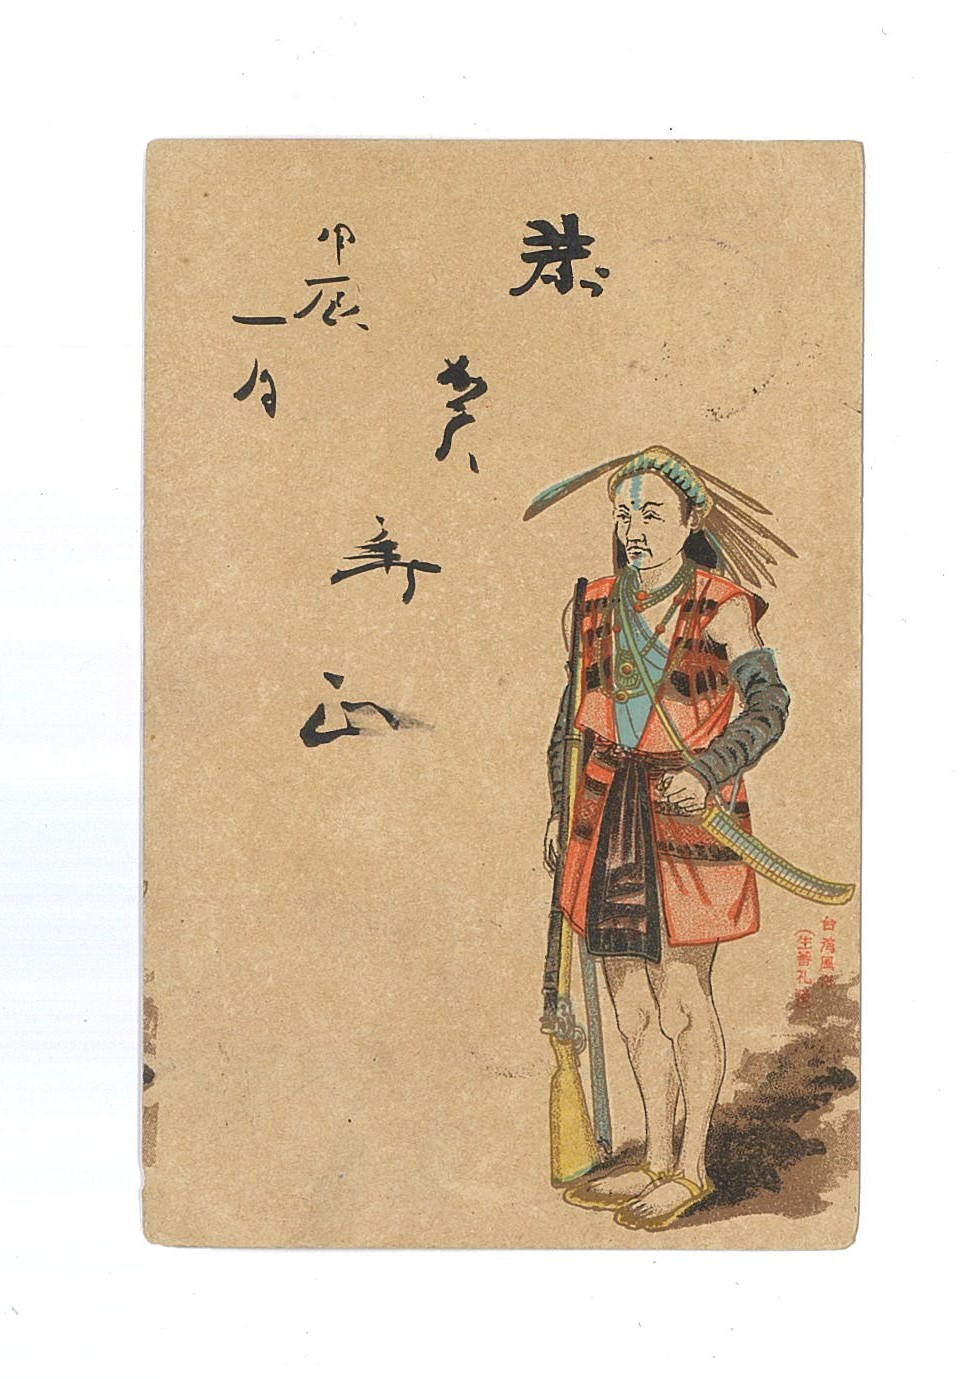 恭
賀
新
正
甲辰
一月
台湾風
(生蕃礼